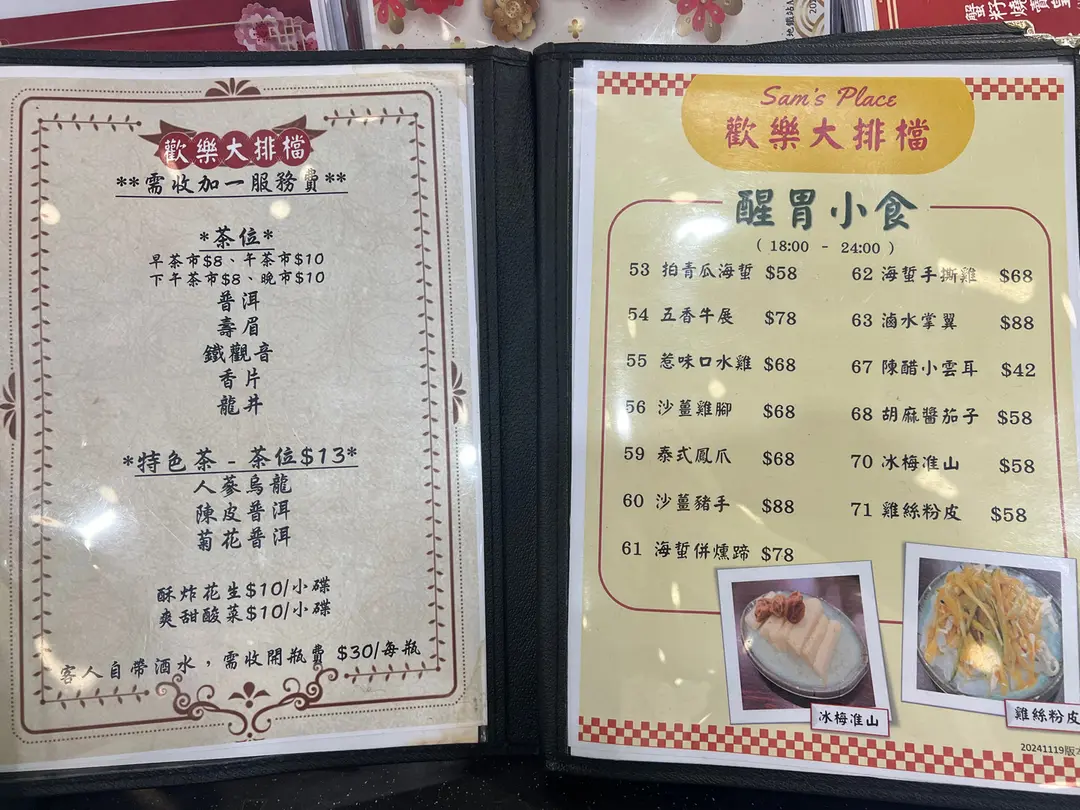 歡樂大排檔
**需收加一服務費**
*茶位*
早茶市$8、午茶市$10
下午茶市$8、晚市$10
普洱
壽眉
鐵觀音
香片
龍井
*特色茶 - 茶位$13*
人蔘烏龍
陳皮普洱
菊花普洱
酥炸花生$10/小碟
爽甜酸菜$10/小碟
客人自帶酒水，需收開瓶費 $30/每瓶
Sam's Place
歡樂大排檔
醒胃小食
( 18:00 - 24:00 )
53 拍青瓜海蜇 $58
54 五香牛展 $78
55 惹味口水雞 $68
56 沙薑雞腳 $68
59 泰式鳳爪 $68
60 沙薑豬手 $88
61 海蜇併燻蹄 $78
62 海蜇手撕雞 $68
63 滷水掌翼 $88
67 陳醋小雲耳 $42
68 胡麻醬茄子 $58
70 冰梅淮山 $58
71 雞絲粉皮 $58
冰梅淮山
雞絲粉皮
20241119版本